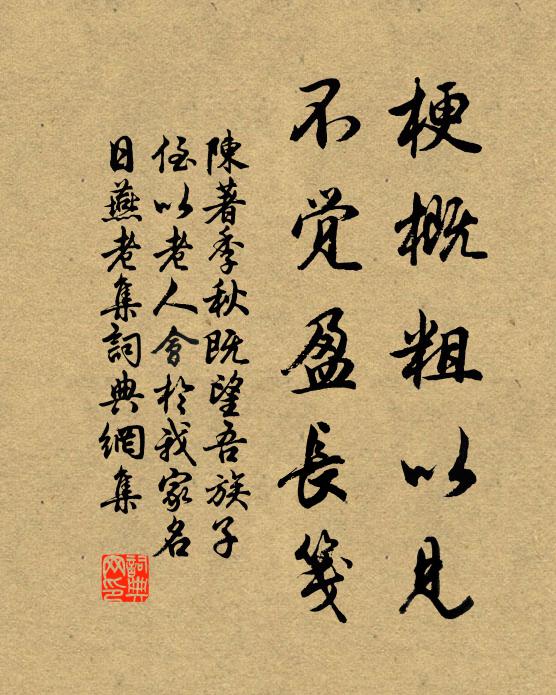 梗概粗以見
不覺盈長箋
陳著季秋既望吾族子
侄以老人會於我家名
日燕老集詞典網集
詞典
网印